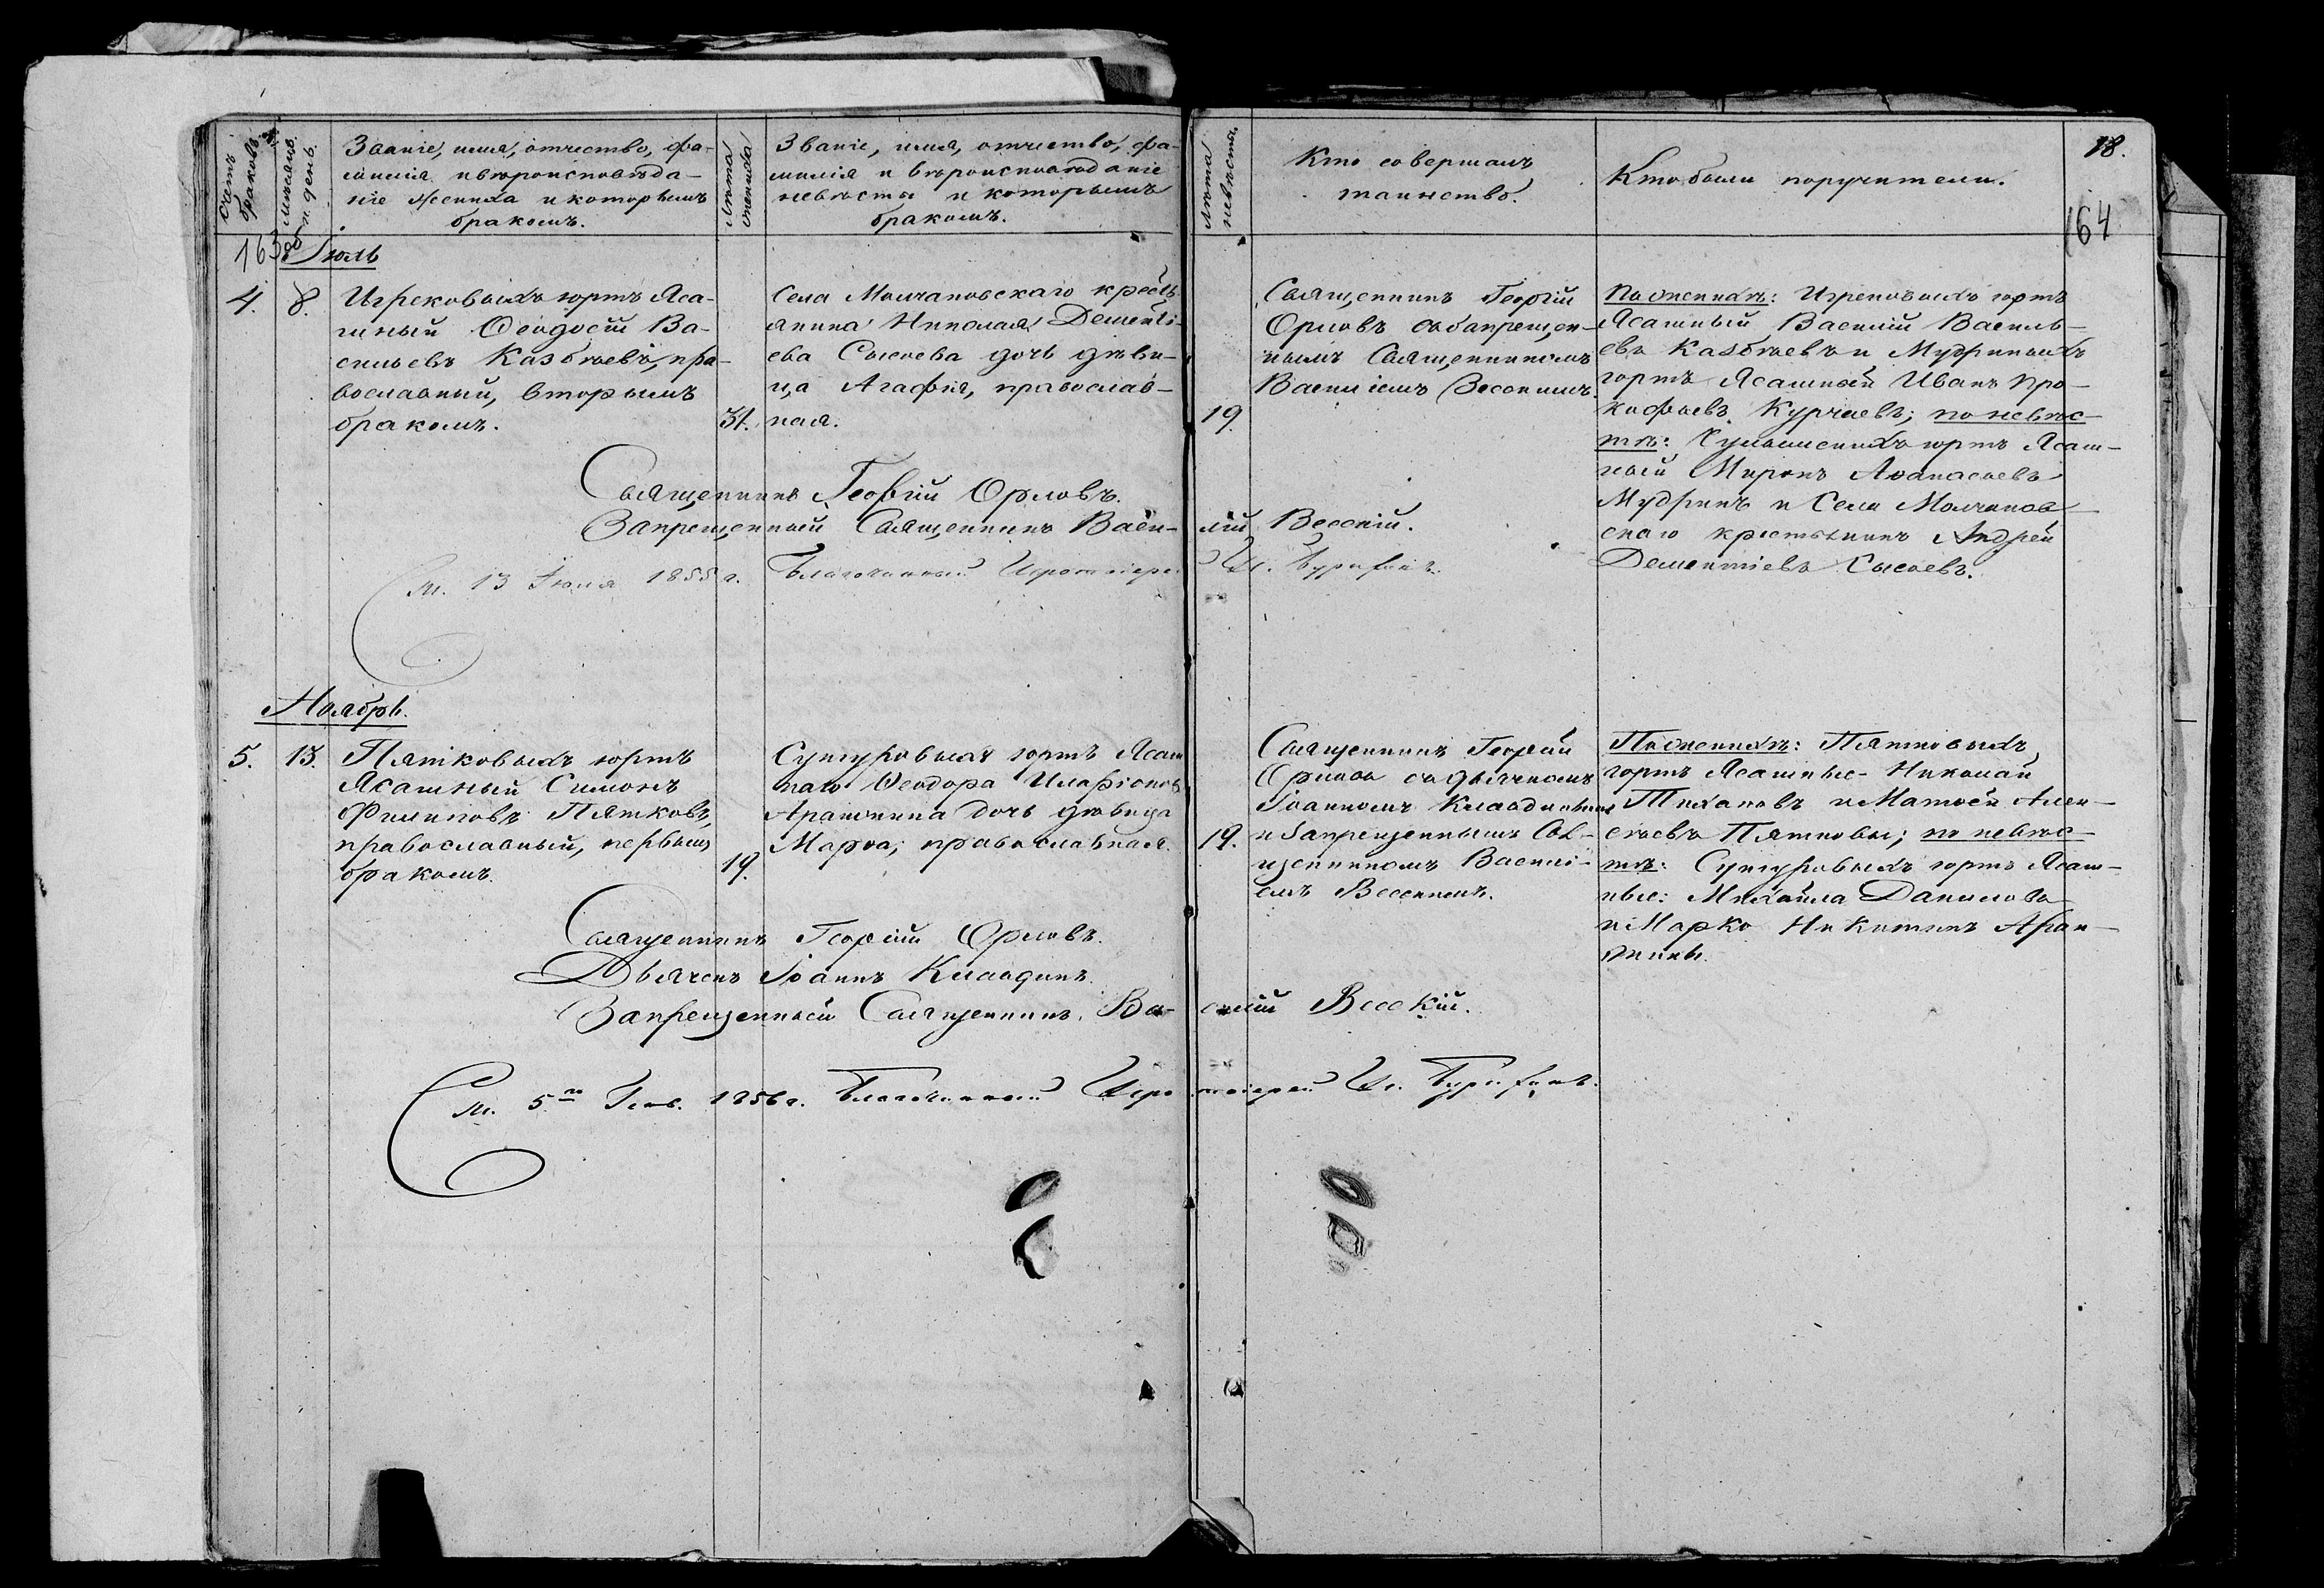 Счетъ браковъ.
Мѣсяцъ и день.
Званіе, имя, отчество, фа-
милія и вѣроисповѣда-
ніе жениха и которымъ
бракомъ.
Лѣта жениха
Званіе, имя, отчество, фа-
милія и вѣроисповѣданіе
невѣсты и которымъ
бракомъ.
Лѣта невѣсты.
Кто совершалъ
таинство.
Кто были поручители.
18.
164
163 об
Іюль
4.
8.
Игрековыхъ юртъ Яса-
шный Ѳеодосій Ва-
сильевъ Казбаевъ, пра-
вославный, вторымъ
бракомъ.
31.
Села Молчановскаго кресть-
янина Николая Дементі-
ева Сысоева дочь дѣви-
ца Агафія, православ-
ная.
19.
Священникъ Георгій
Орловъ съ запрещен-
нымъ Священникомъ
Василіемъ Весскимъ.
По женихѣ: Игрековыхъ юртъ
Ясашный Василій Василь-
евъ Казбаевъ и Мудриныхъ
юртъ Ясашный Иванъ Про-
кофьевъ Курчаевъ; по невѣс-
тѣ: юртъ Ясаш-
ный Миронъ Аѳанасьевъ
Мудринъ и Села Молчанов-
скаго крестьянинъ Андрей
Дементіевъ Сысоевъ.
Священникъ Георгій Орловъ.
Запрещенный Священникъ Васи-
лій Весскій.
См. 13 Іюля 1855 г. Благочинный Протоіерей
Ноябрь.
5.
13.
Пятковыхъ юртъ
Ясашный Симонъ
Филиповъ Пятковъ,
православный, первымъ
бракомъ.
19.
Сунгуровыхъ юртъ Ясаш
наго Ѳеодора Иларіонова
дочь дѣвица
Марѳа, православная.
19.
Священникъ Георгій
Орловъ съ дьячкомъ
Іоанномъ Клавдинымъ
и запрещеннымъ Свя-
щенникомъ Василі-
емъ Весскимъ.
По женихѣ: Пятковыхъ
юртъ Ясашные Николай
Тихановъ и Матвѣй Алек-
сѣевъ Пятковы; по невѣс-
тѣ: Сунгуровыхъ юртъ Ясаш-
ные: Михайла Даниловъ
и Марко Никитинъ
Священникъ Георгій Орловъ.
Дьячекъ Іоаннъ Клавдинъ.
Запрещенный Священникъ Ва-
силій Весскій.
См. 5го Генв. 1856 г. Благочинный Протоіерей